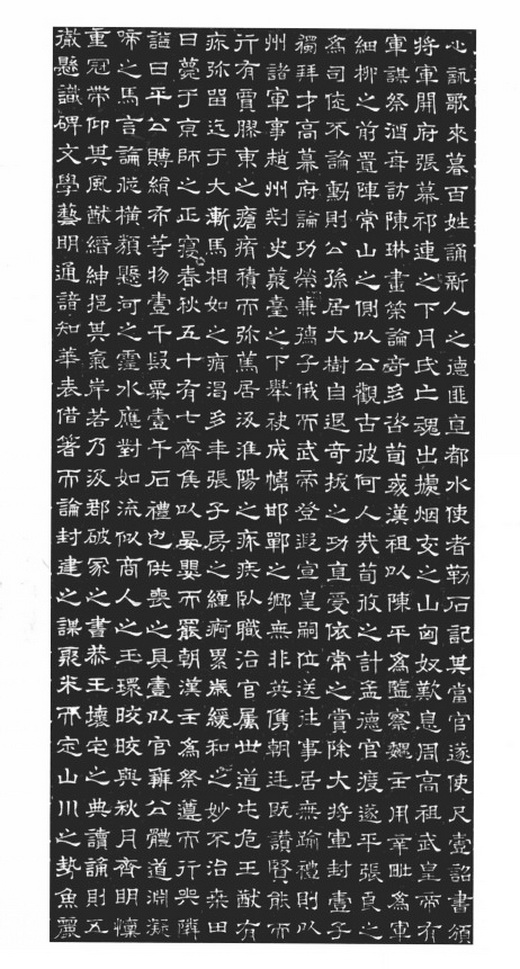 心訊歌來暮百姓誦新人之德匪亶都水使者勒石記其當官遂使尺壹詔書頒
將軍開府張幕祁連之下月氏亡魂出據烟支之山匈奴歎息周高祖武皇帝有
軍謀祭酒每訪陳琳畫策論奇多咨荀彧漢祖以陳平為監察魏主用辛毗為軍
細柳之前置陣常山之側以公觀古彼何人哉荀攸之計孟德官渡遂平張良之
為司徒不論勳則公孫居大樹自退奇拔之功直受依常之賞除大將軍封壹子
獨拜才高幕府論功榮兼孺子俄而武帝登遐宣皇嗣位送往事居無踰禮則以
州諸軍事趙州刾史叢臺之下舉袂成帷邯鄲之鄉無非英儁朝廷既讚賢能而
行有賈膠東之瘡痏積而弥篤居汲淮陽之疢疾臥職治官屬世道屯危王猷有
疢弥留迄于大漸馬相如之痟渴多年張子房之經痾累歲緩和之妙不治桑田
日薨于京師之正寢春秋五十有七齊侯以晏嬰而罷朝漢主為祭遵而行哭隣
諡曰平公賻絹布等物壹千段粟壹千石禮也供喪之具壹以官雍公體道淵凝
啼之馬言論從橫類懸河之水應對如流似商人之玉環晈晈與秋月齊明懍
重冠帶仰其風猷縉紳挹其氣岸若乃汲郡破冢之書恭王壞宅之典讀誦則五
徽懸識碑文學藝明通諳知華表借箸而論封建之謀聚米而定山川之勢魚麗